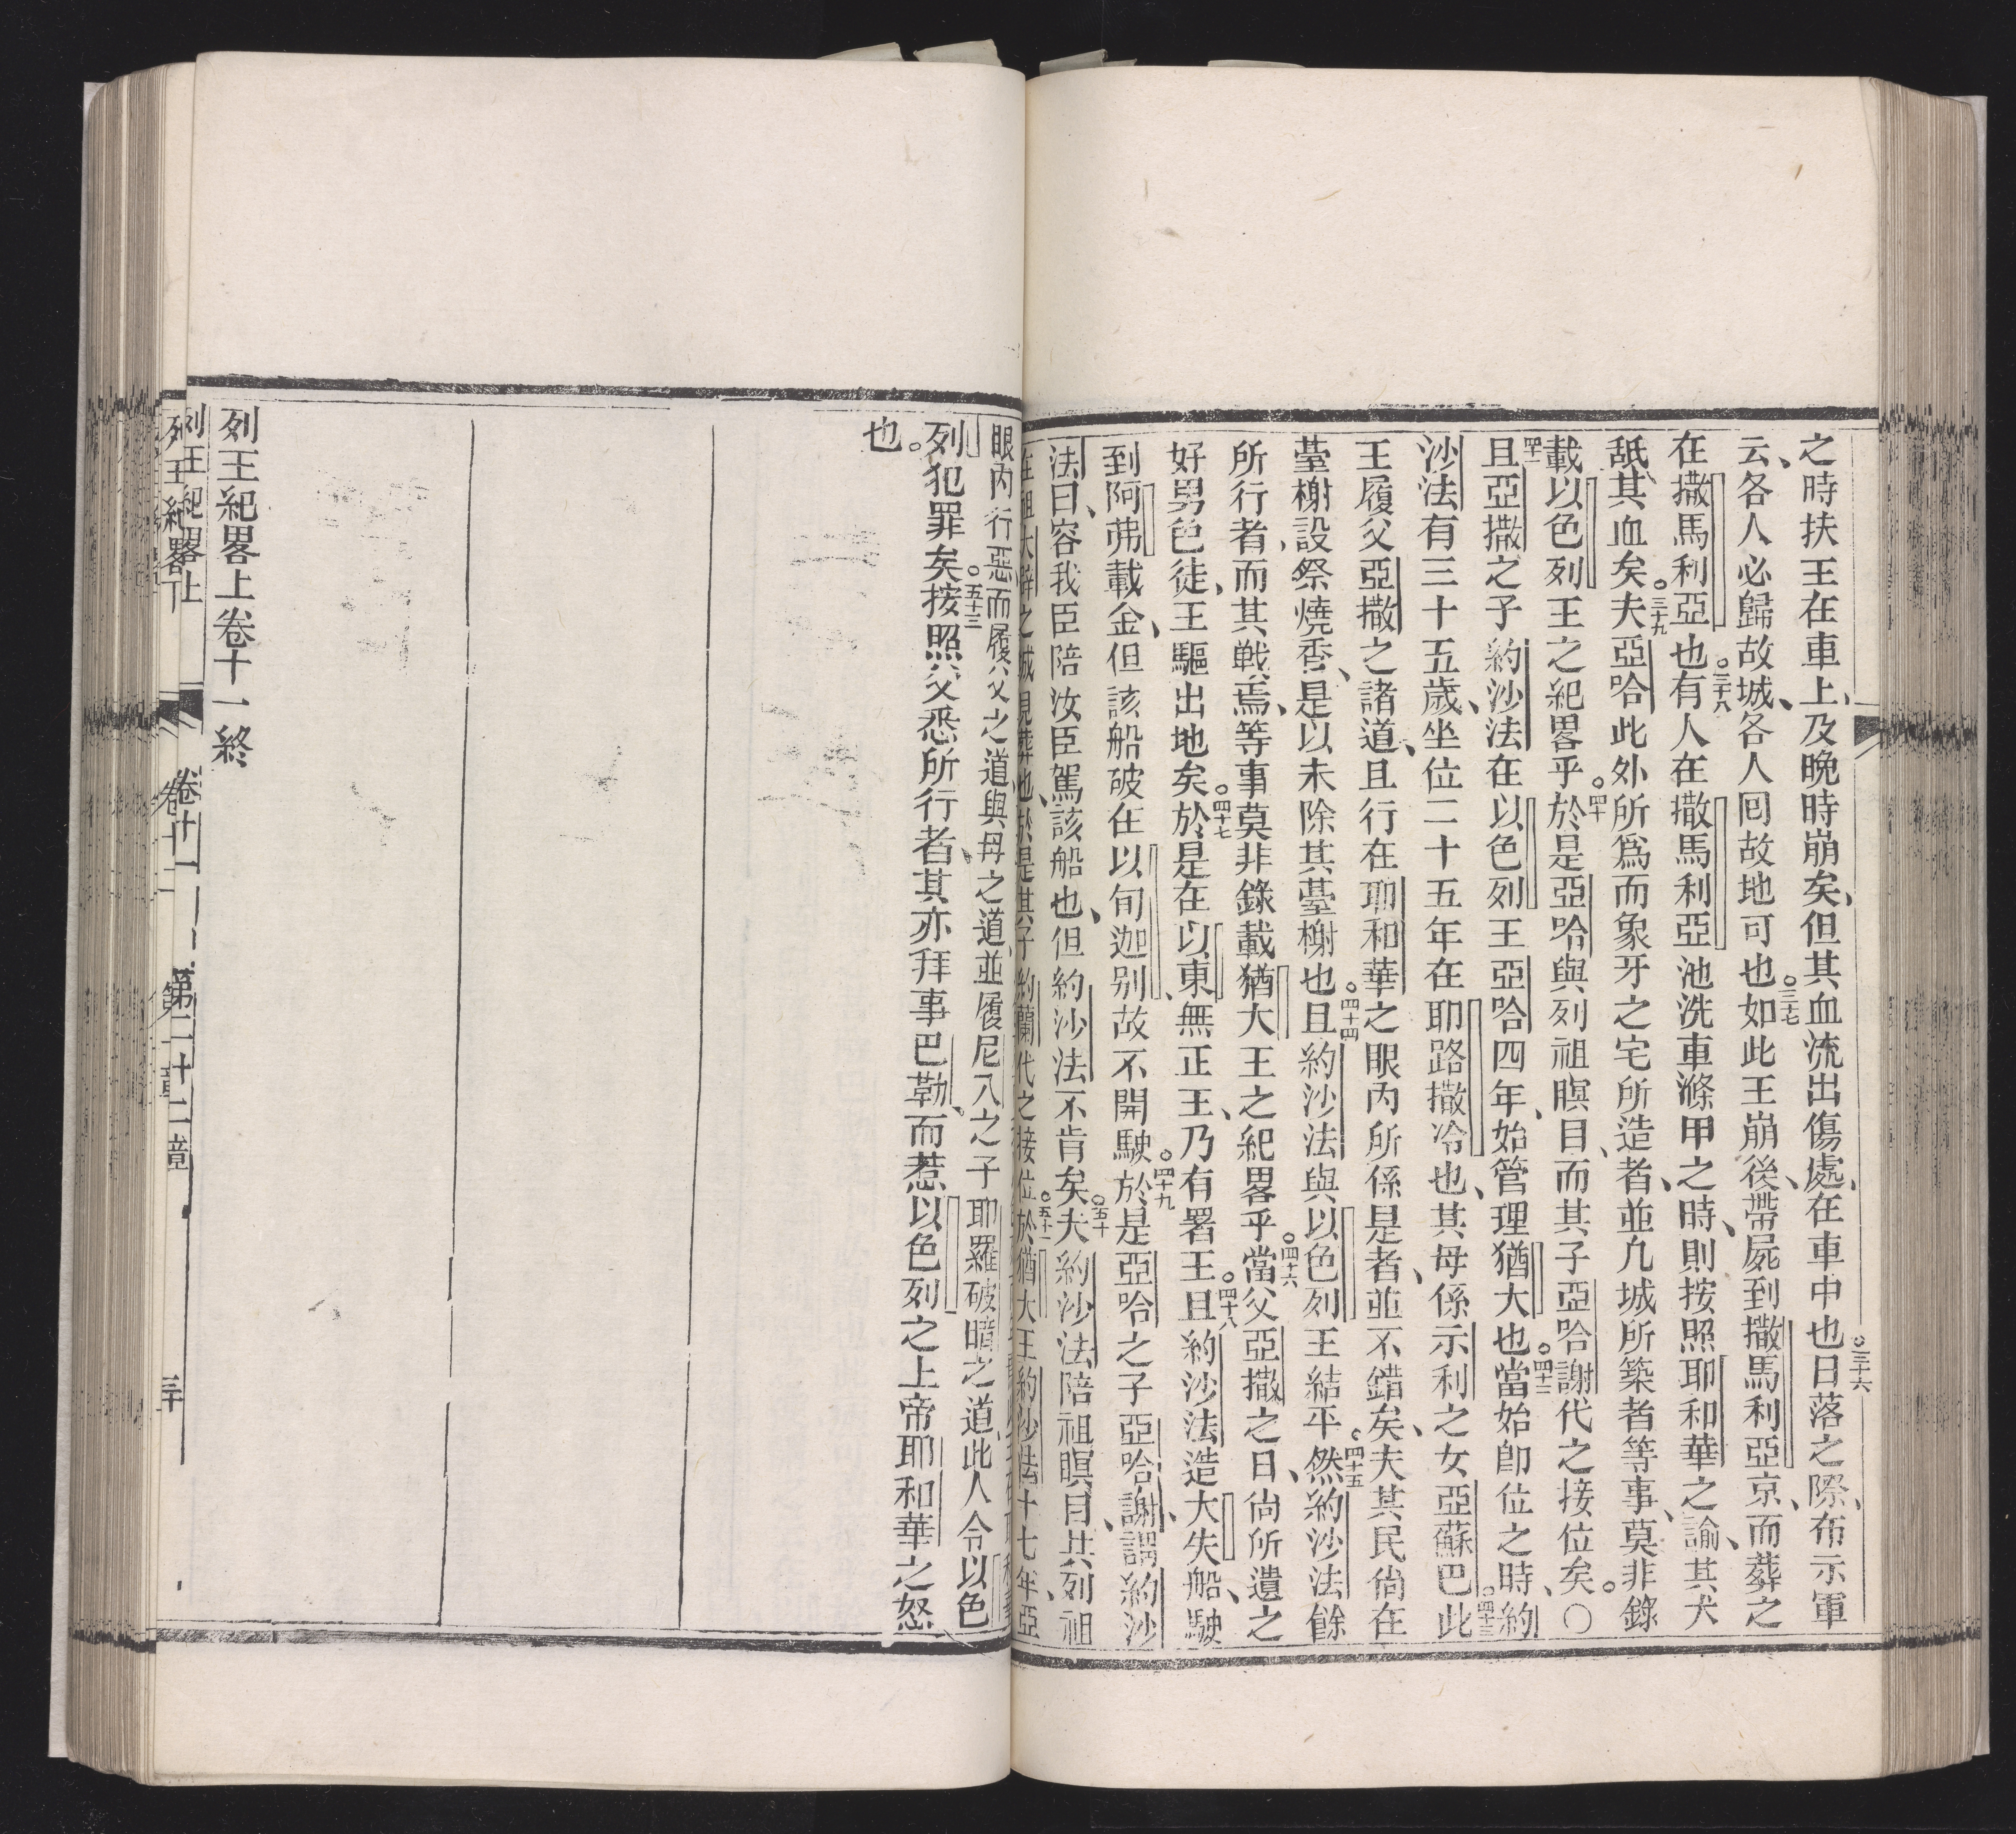 之時扶王在車上及晚時崩矣、但其血流出傷處、在車中也。三十六日落之際、布示軍
云、各人必歸故城、各人囘故地可也。三十七如此王崩後、帶屍到撒馬利亞京、而葬之
在撒馬利亞也。三十八有人在撒馬利亞池洗車滌甲之時、則按照耶和華之諭、其犬
舐其血矣。三十九夫亞哈此外所爲而象牙之宅所造者、並凡城所築者等事、莫非錄
載以色列王之紀畧乎。四十於是亞哈與列祖瞑目、而其子亞哈謝代之接位矣。〇
四十一且亞撒之子約沙法在以色列王亞哈四年、始管理猶大也。四十二當始卽位之時、約
沙法有三十五歲、坐位二十五年在耶路撒冷也、其母係示利之女亞蘇巴。四十三此
王履父亞撒之諸道、且行在耶和華之眼內所係是者、並不錯矣、夫其民尙在
䑓榭設祭燒香、是以未除其䑓榭也。四十四且約沙法與以色列王結平。四十五然約沙法餘
所行者、而其戰焉、等事莫非錄載猶大王之紀畧乎。四十六當父亞撒之日、尙所遺之
好男色徒、王驅出地矣。四十七於是在以東、無正王、乃有署王。四十八且約沙法造大失船、駛
到阿弗載金、但該船破在以旬迦别、故不開駛。四十九於是亞哈之子亞哈謝謂約沙
法曰、容我臣陪汝臣駕該船也、但約沙法不肯矣。五十夫約沙法陪祖瞑目、共列祖
在祖大辟之城見葬也、於是其子約蘭代之接位。五十一於猶大王約沙法十七年、亞
眼內行惡、而履父之道與母之道、並履尼八之子耶羅破暗之道、此人令以色
列犯罪矣。五十三按照父悉所行者、其亦拜事巴勒、而惹以色列之上帝耶和華之怒
也。
列王紀畧上卷十一終
列王紀畧上 卷十一 第二十二章 三十